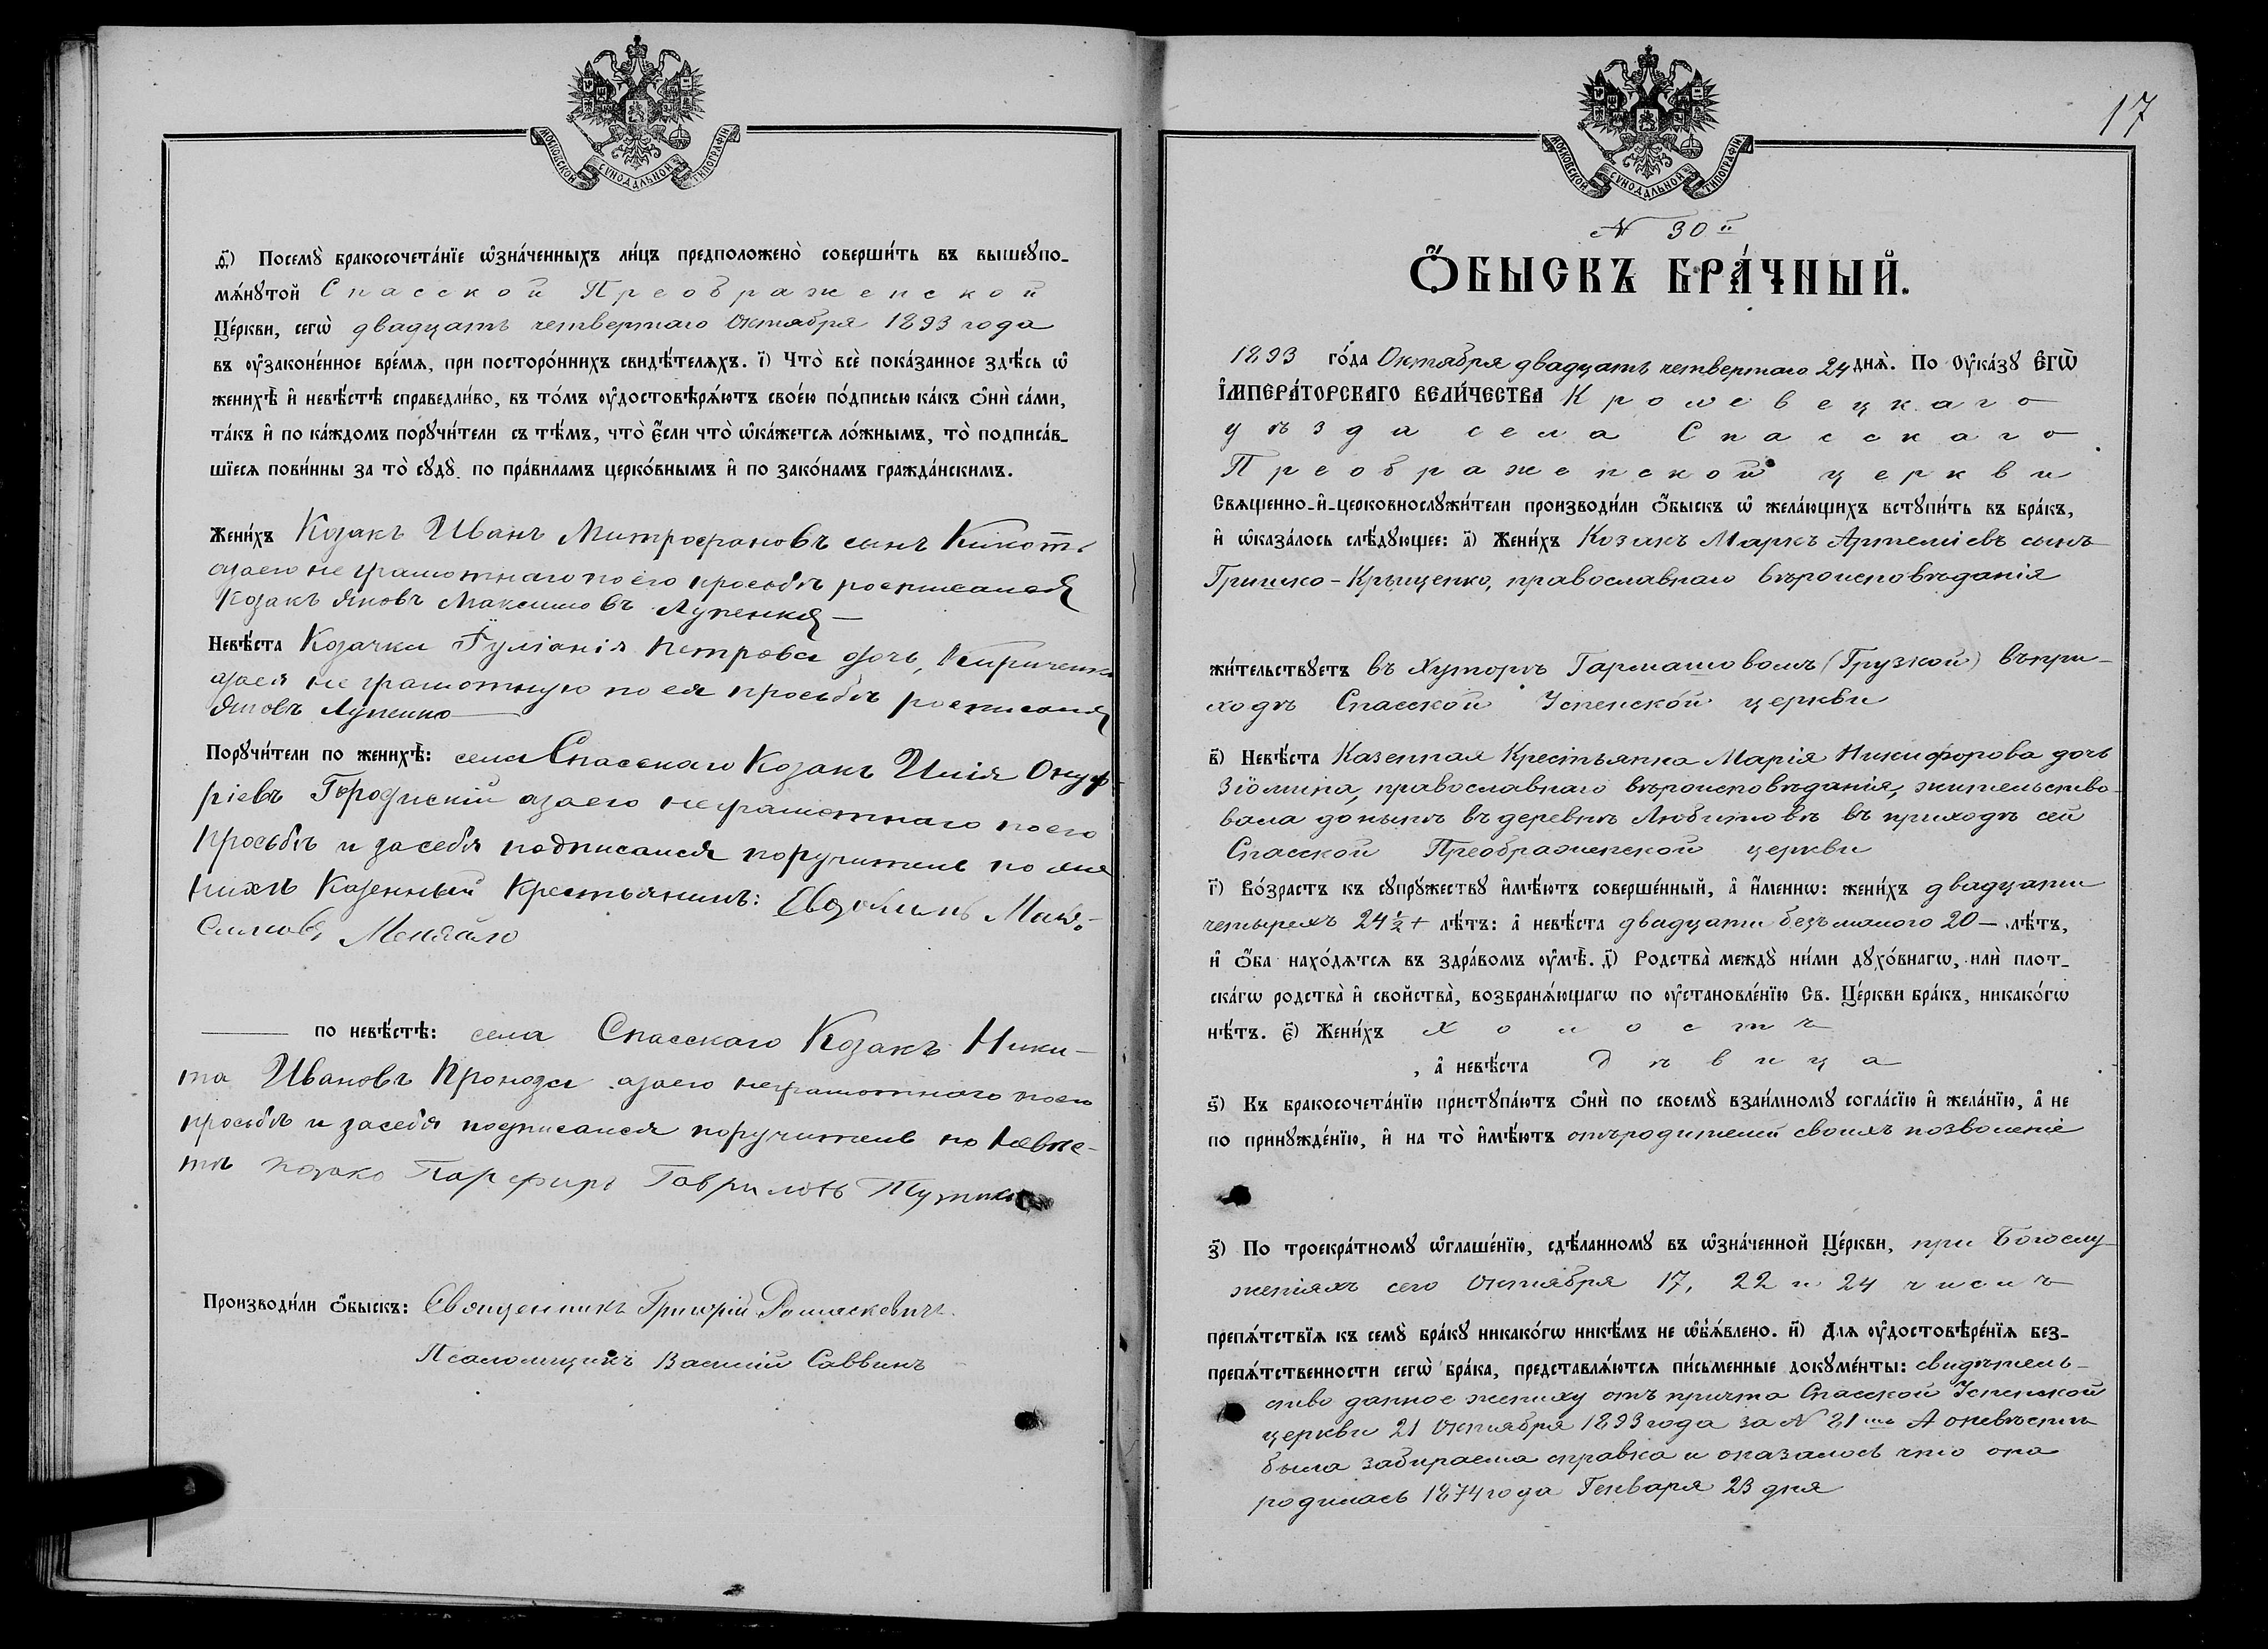 МОСКОВСКОЙ СѴНОДАЛЬНОЙ ТИПОГРАФІИ
ѳ҃) Посемꙋ̀ бракосочета́нїе ѡ҆зна́ченныхъ ли́цъ предположено̀ соверши́ть въ вышеꙋпо-
мѧ́нꙋтой Спасской Преображенской
Це́ркви, сегѡ̀ двадцать четвертаго Октября 1893 года
въ ᲂу҆законе́нное вре́мѧ, при посторо́ннихъ свидѣ́телѧхъ. і҃) Что̀ всѐ пока́занное здѣ́сь ѡ҆
женихѣ̀ и҆ невѣ́стѣ справедли́во, въ то́мъ ᲂу҆достовѣрѧ́ютъ свое́ю по́дписью ка́къ ѻ҆нѝ са́ми,
та́къ и҆ по ка́ждомъ порꙋчи́тели съ тѣ́мъ, что̀ є҆́сли что̀ ѡ҆ка́жетсѧ ло́жнымъ, то̀ подписа́в-
шїесѧ пови́нны за то̀ сꙋдꙋ̀ по пра́виламъ церко́внымъ и҆ по зако́намъ гражда́нскимъ.
Жени́хъ Козакъ Иванъ Митрофановъ сынъ Кикоть
азаего не грамотнаго по его просьбѣ росписался
Козакъ Яковъ Максимовъ Лупенко
Невѣ́ста Козачка Іуліанія Петрова дочь, Кириченко
азаея не грамотную по ея просьбѣ росписался
Яковъ Лупенко
Порꙋчи́тели по женихѣ̀: села Спасскаго Козакъ Илія Онуф-
ріевъ Городнскій азаего неграмотнаго поего
просьбѣ и засебя подписался поручитель по же
нихѣ Казенный Крестьянинъ: Евдокимъ Мак-
симовъ Меняйло
по невѣ́стѣ: села Спасскаго Козакъ Ники-
та Ивановъ Проноза азаего неграмотнаго поего
просьбѣ и засебя подписался поручитель по невѣс-
тѣ козакъ Парфирь Гавриловъ
Производи́ли ѻ҆́быскъ: Священникъ Григорій Ромаскевичъ.
Псаломщикъ Василій Саввинъ
17
МОСКОВСКОЙ СѴНОДАЛЬНОЙ ТИПОГРАФІИ
№ 30й
Ѻ҆́БЫСКЪ БРА́ЧНЫЙ.
1893 го́да Октября двадцать четвертаго 24 днѧ̀. По Ѹ҆ка́зꙋ Є҆гѡ̀
І҆мпера́торскагѡ Вели́чества Кролевецкаго
уѣзда села Спасскаго
Преображенской церкви
Свѧщенно-и҆-церковнослꙋжи́тели производи́ли ѻ҆́быскъ ѡ҆ жела́ющихъ встꙋпи́ть въ бра́къ,
и҆ ѡ҆каза́лось слѣ́дꙋющее: а҃) Жени́хъ Козакъ Маркъ Артеміевъ сынъ
Гришко-Крыценко, православнаго вѣроисповѣданія
жи́тельствꙋетъ въ Хуторѣ Гармашовомъ (Грузкой) въпри-
ходѣ Спасской Успенской церкви
в҃) Невѣ́ста Казенная Крестьянка Марія Никифорова дочь
Зіомина, православнаго вѣроисповѣданія, жительство-
вала донынѣ въ деревнѣ Любитовѣ въ приходѣ сей
Спасской Преображенской церкви
г҃) Во́зрастъ къ сꙋпрꙋ́жествꙋ и҆мѣ́ютъ соверше́нный, а҆ и҆́менно: жени́хъ двадцати
четырехъ 24 ½ + лѣ́тъ: а҆ невѣ́ста двадцати безъ малого 20 — лѣ́тъ,
и҆ ѻ҆́ба нахо́дѧтсѧ въ здра́вомъ ᲂу҆мѣ̀. д҃) Родства̀ междꙋ̀ ни́ми дꙋхо́внагѡ, илѝ плот-
ска́гѡ родства̀ и҆ свойства̀, возбранѧ́ющагѡ по ᲂу҆становле́нїю Св. Це́ркви бра́къ, никако́гѡ
нѣ́тъ. є҃) Жени́хъ холостъ
, а҆ невѣ́ста дѣвица
ѕ҃) Къ бракосочета́нїю пристꙋпа́ютъ ѻ҆нѝ по своемꙋ̀ взаи́мномꙋ согла́сїю и҆ жела́нїю, а҆ не
по принꙋжде́нїю, и҆ на то̀ и҆мѣ́ютъ отъродителей своихъ позволеніе
з҃) По троекра́тномꙋ ѡ҆глаше́нїю, сдѣ́ланномꙋ въ ѡ҆зна́ченной Це́ркви, при Богослу-
женіяхъ сего Октября 17, 22 и 24 числъ
препѧ́тствїѧ къ семꙋ̀ бра́кꙋ никако́гѡ никѣ́мъ не ѡ҆б̾ѧ́влено. и҃) Длѧ ᲂу҆достовѣре́нїѧ без-
препѧ́тственности сегѡ̀ бра́ка, представлѧ́ютсѧ пи́сьменные докꙋме́нты: свидѣтель-
ство данное жениху отъ причта Спасской Успенской
церкви 21 Октября 1893 года за № 81мъ А оневѣстѣ
была забираема справка и оказалось что она
родилась 1874 года Генваря 23 дня